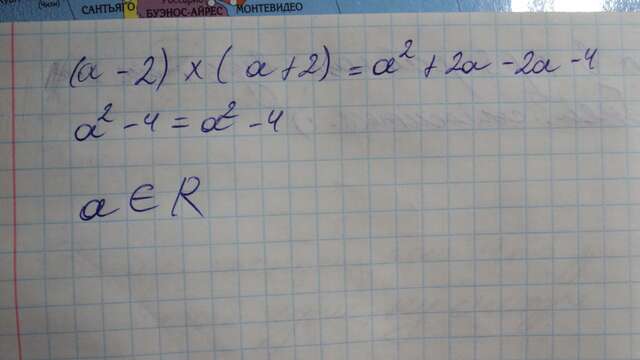 (Чили)
САНТЬЯГО
БУЭНОС-АЙРЕС
МОНТЕВИДЕО
(a - 2) × ( a + 2) = a² + 2a - 2a - 4
a² - 4 = a² - 4
a ∈ R